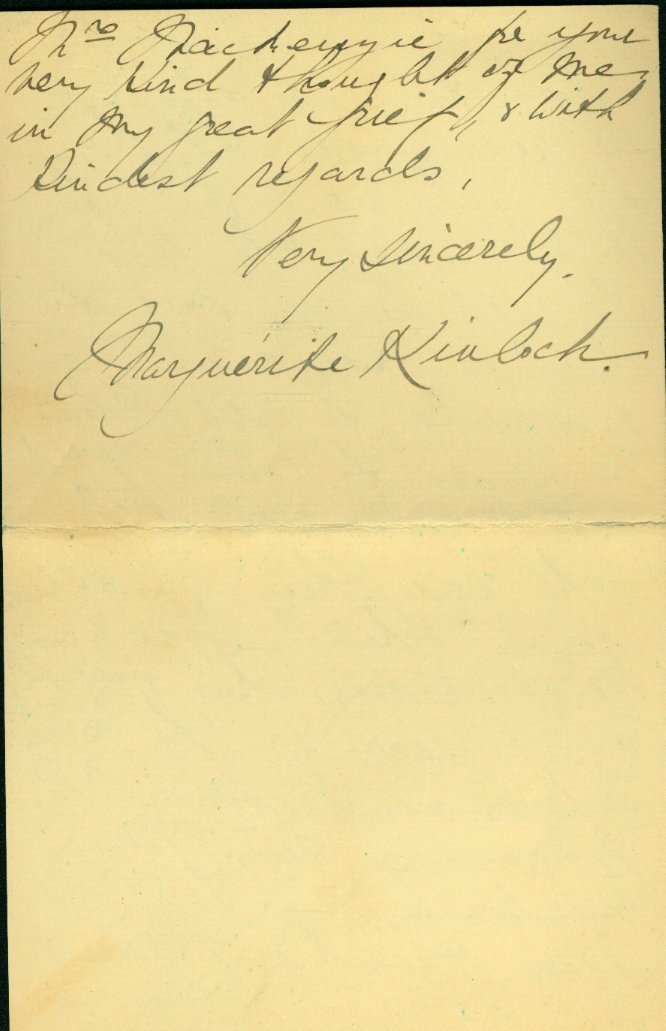 Mrs Mackenzie for your
very kind thought of me
in my great grief, & with
Kindest regards,
Very sincerely,
Marguérite Kinloch.